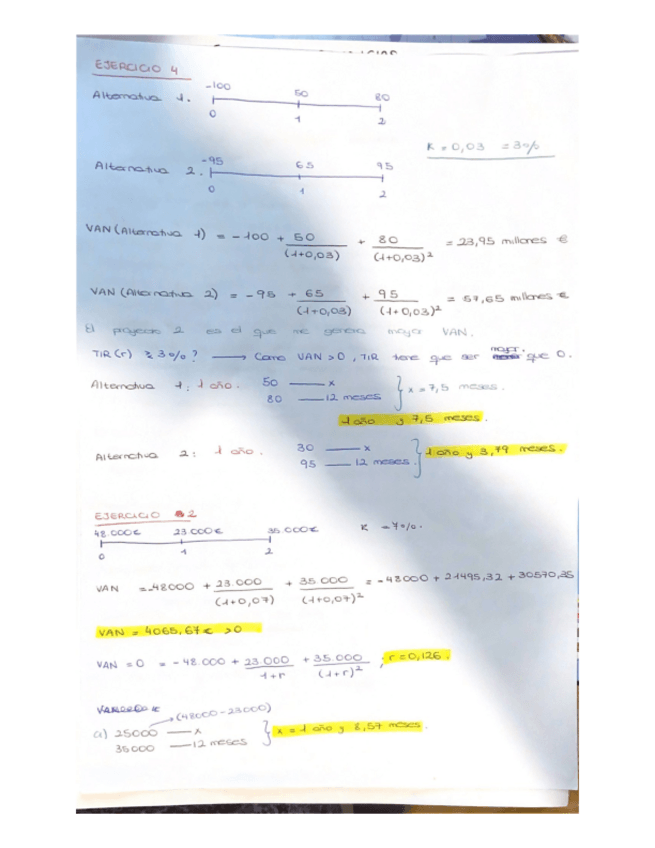 EJERCICIO 4
Alternativa 1. -100 50 80
0 1 2
K = 0,03 = 3%
Alternativa 2. -95 65 95
0 1 2
VAN (Alternativa 1) = -100 + 50/(1+0,03) + 80/(1+0,03)² = 23,95 millones €
VAN (Alternativa 2) = -95 + 65/(1+0,03) + 95/(1+0,03)² = 57,65 millones €
El proyecto 2 es el que me genera mayor VAN.
TIR (r) ≥ 3%? → Como VAN > 0, TIR tiene que ser mayor que 0.
Alternativa 1: 1 año. 50 — x
80 — 12 meses } x = 7,5 meses.
1 año y 7,5 meses.
Alternativa 2: 1 año. 30 — x
95 — 12 meses } 1 año y 3,79 meses.
EJERCICIO 2
48.000€ 23.000€ 35.000€ K = 7%.
0 1 2
VAN = -48000 + 23.000/(1+0,07) + 35.000/(1+0,07)² = -48000 + 21495,32 + 30570,35
VAN = 4065,67€ >0
VAN = 0 = -48.000 + 23.000/1+r + 35.000/(1+r)² ; r = 0,126.
→ (48000-23000)
a) 25000 — x
35000 — 12 meses } x = 1 año y 8,57 meses.